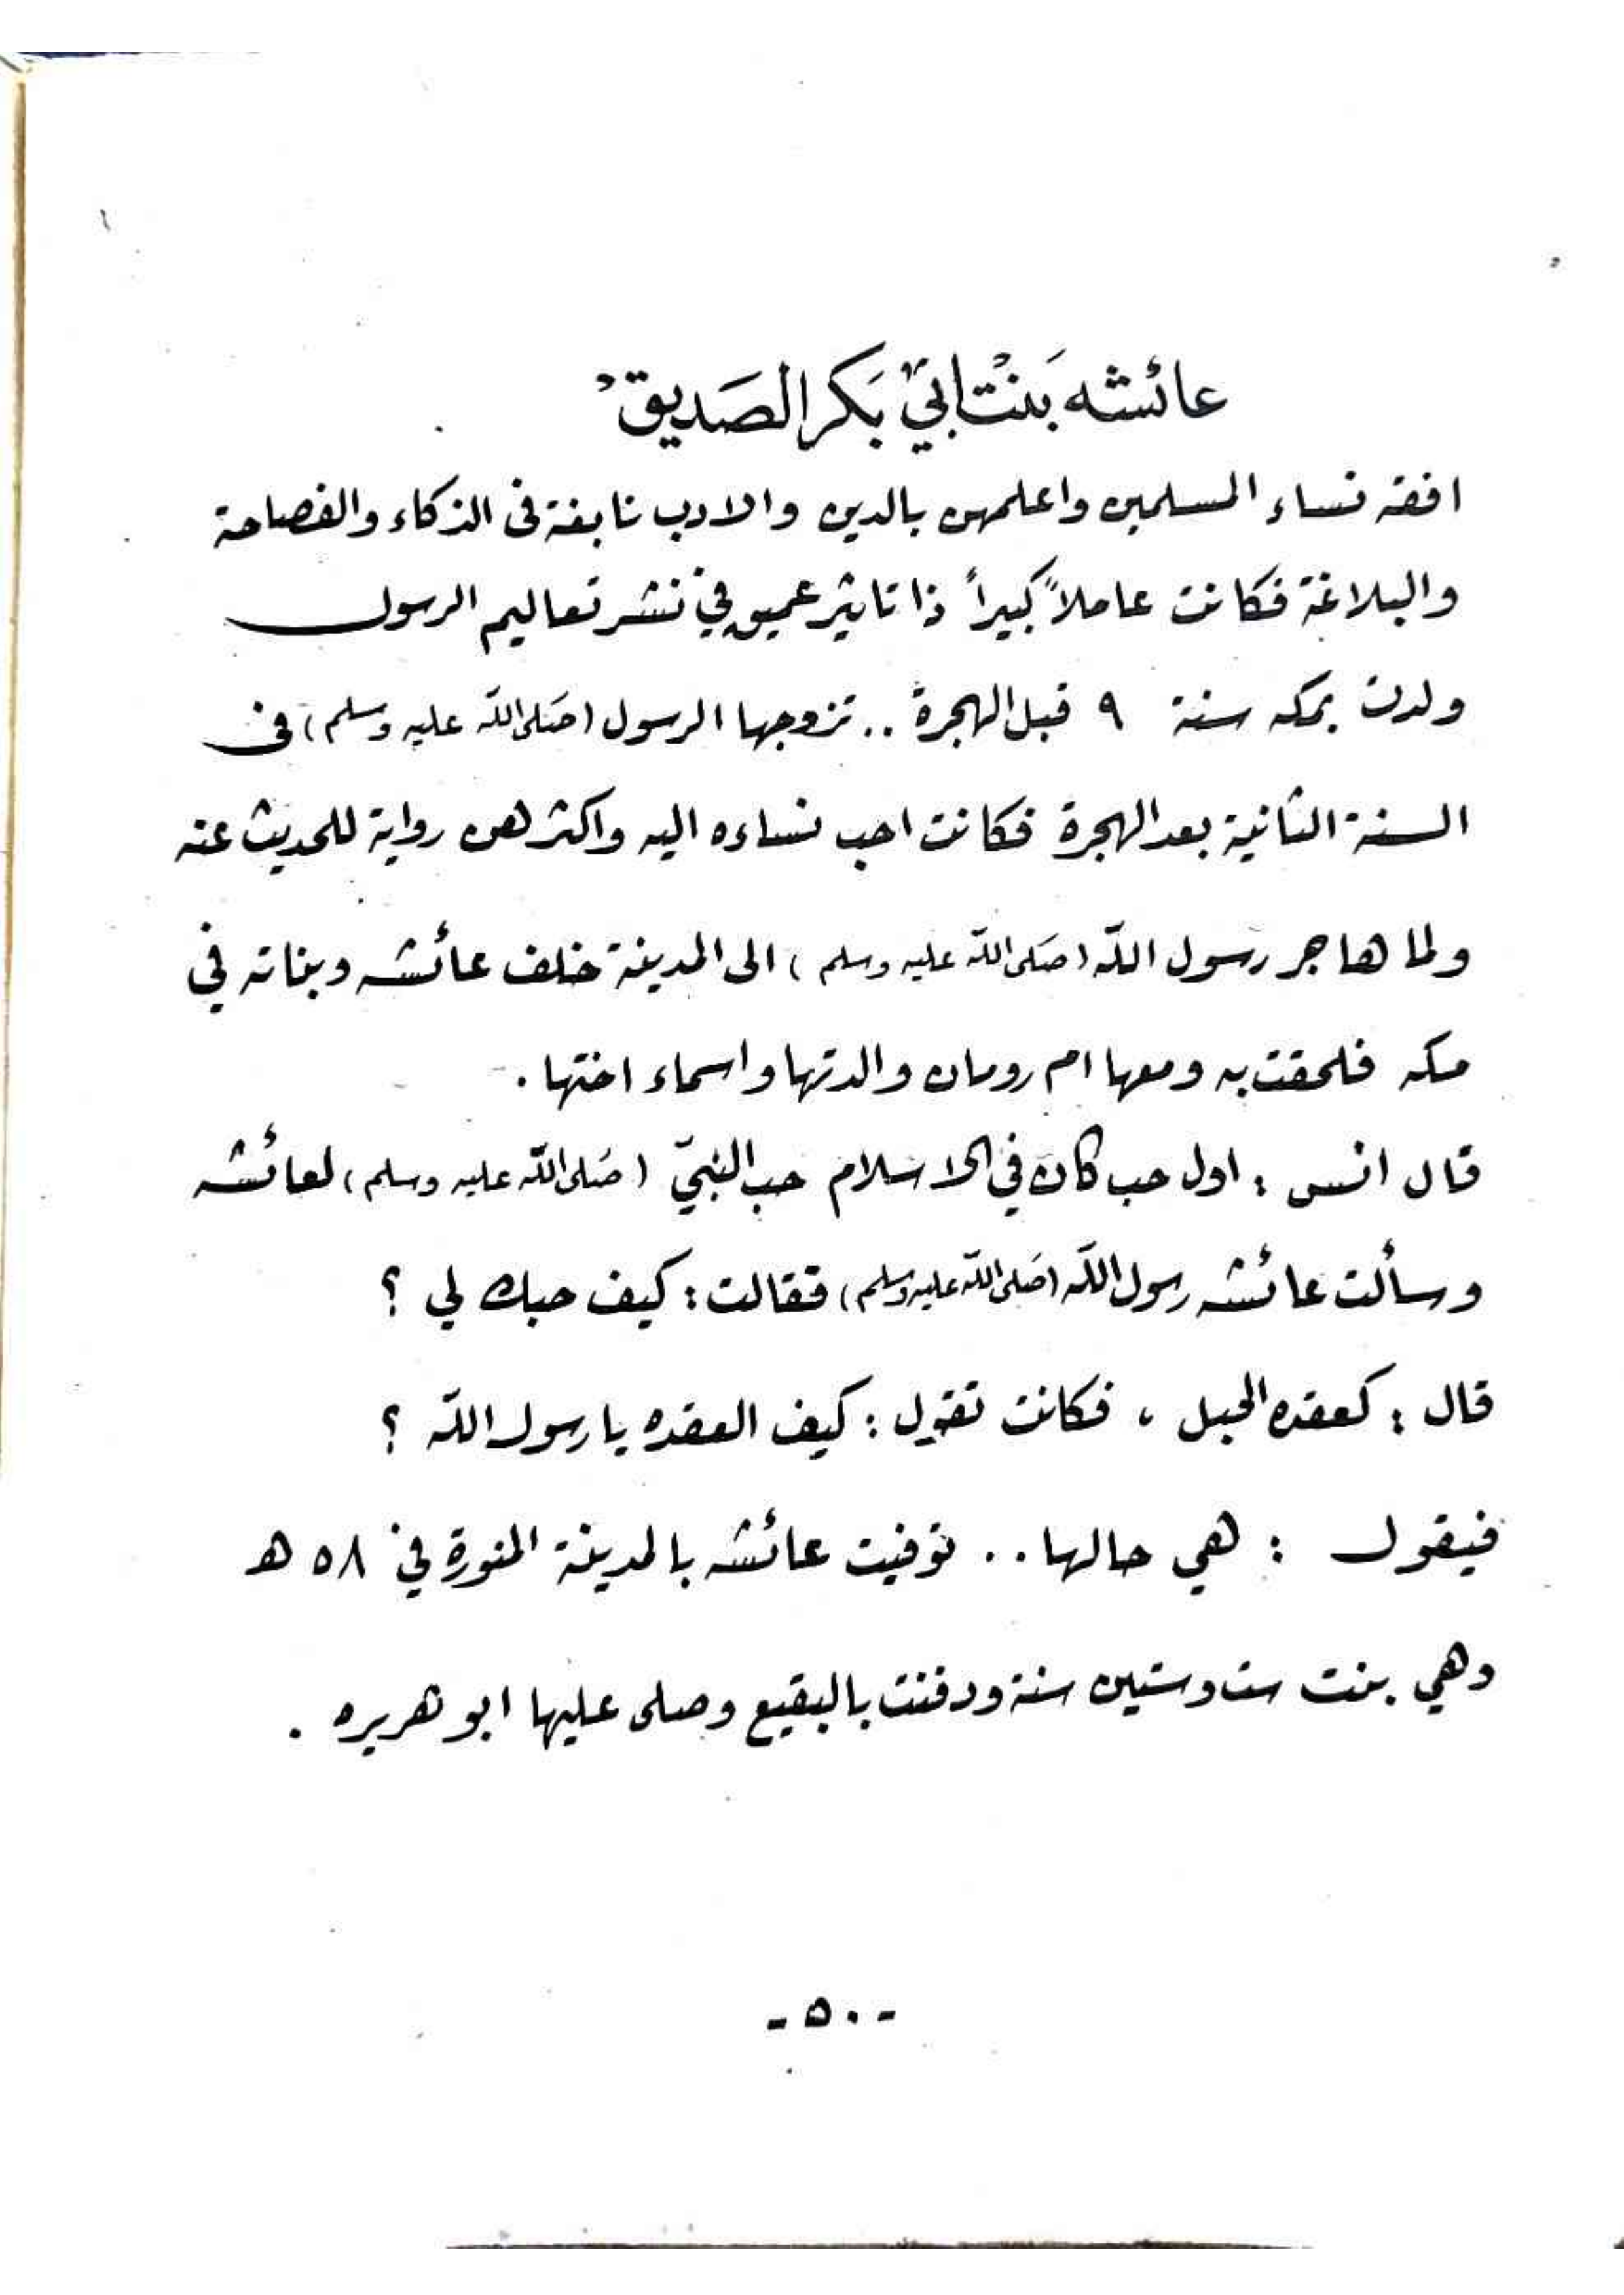 عائشه بنت ابي بكر الصديق
افقه نساء المسلمين واعلمهن بالدين والادب نابغة في الذكاء والفصاحة
والبلاغة فكانت عاملاً كبيراً ذا تاثير عميق في نشر تعاليم الرسول
ولدت بمكه سنة ٩ قبل الهجرة .. تزوجها الرسول (صلى الله عليه وسلم) في
السنة الثانية بعد الهجرة فكانت احب نساءه اليه واكثرهن رواية للحديث عنه
ولما هاجر رسول الله (صلى الله عليه وسلم) الى المدينة خلف عائشه وبناته في
مكه فلحقت به ومعها ام رومان والدتها واسماء اختها .
قال انس : اول حب كان في الاسلام حب النبيّ (صلى الله عليه وسلم) لعائشه
وسألت عائشه رسول الله (صلى الله عليه وسلم) فقالت : كيف حبك لي ؟
قال : كعقده الحبل ، فكانت تقول : كيف العقده يا رسول الله ؟
فيقول : هي حالها .. توفيت عائشه بالمدينة المنورة في ٥٨ هـ
وهي بنت ست وستين سنة ودفنت بالبقيع وصلى عليها ابو هريره .
- ٥٠ -